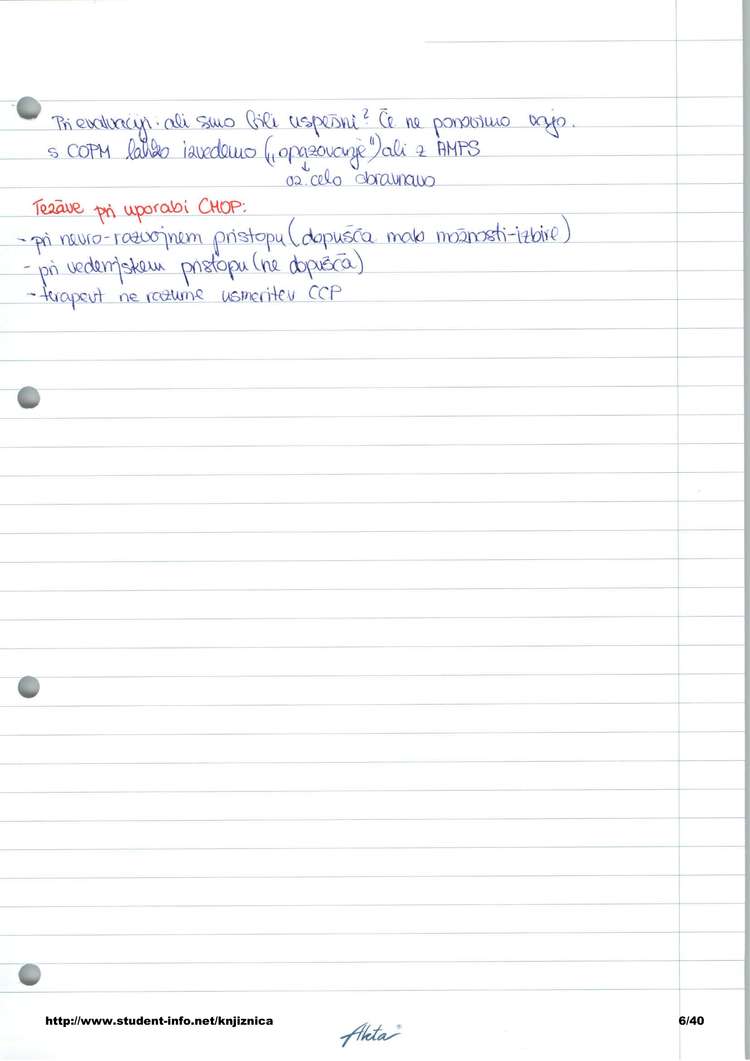 Pri evalvaciji: ali smo bili uspešni? Če ne ponovimo vajo.
s COPM lahko izvedemo („opazovanje") ali z AMPS
oz. celo obravnavo
Težave pri uporabi CMOP:
- pri nevro-razvojnem pristopu (dopušča malo možnosti-izbire)
- pri vedenjskem pristopu (ne dopušča)
- terapevt ne razume usmeritev CCP
http://www.student-info.net/knjiznica
6/40
Akta